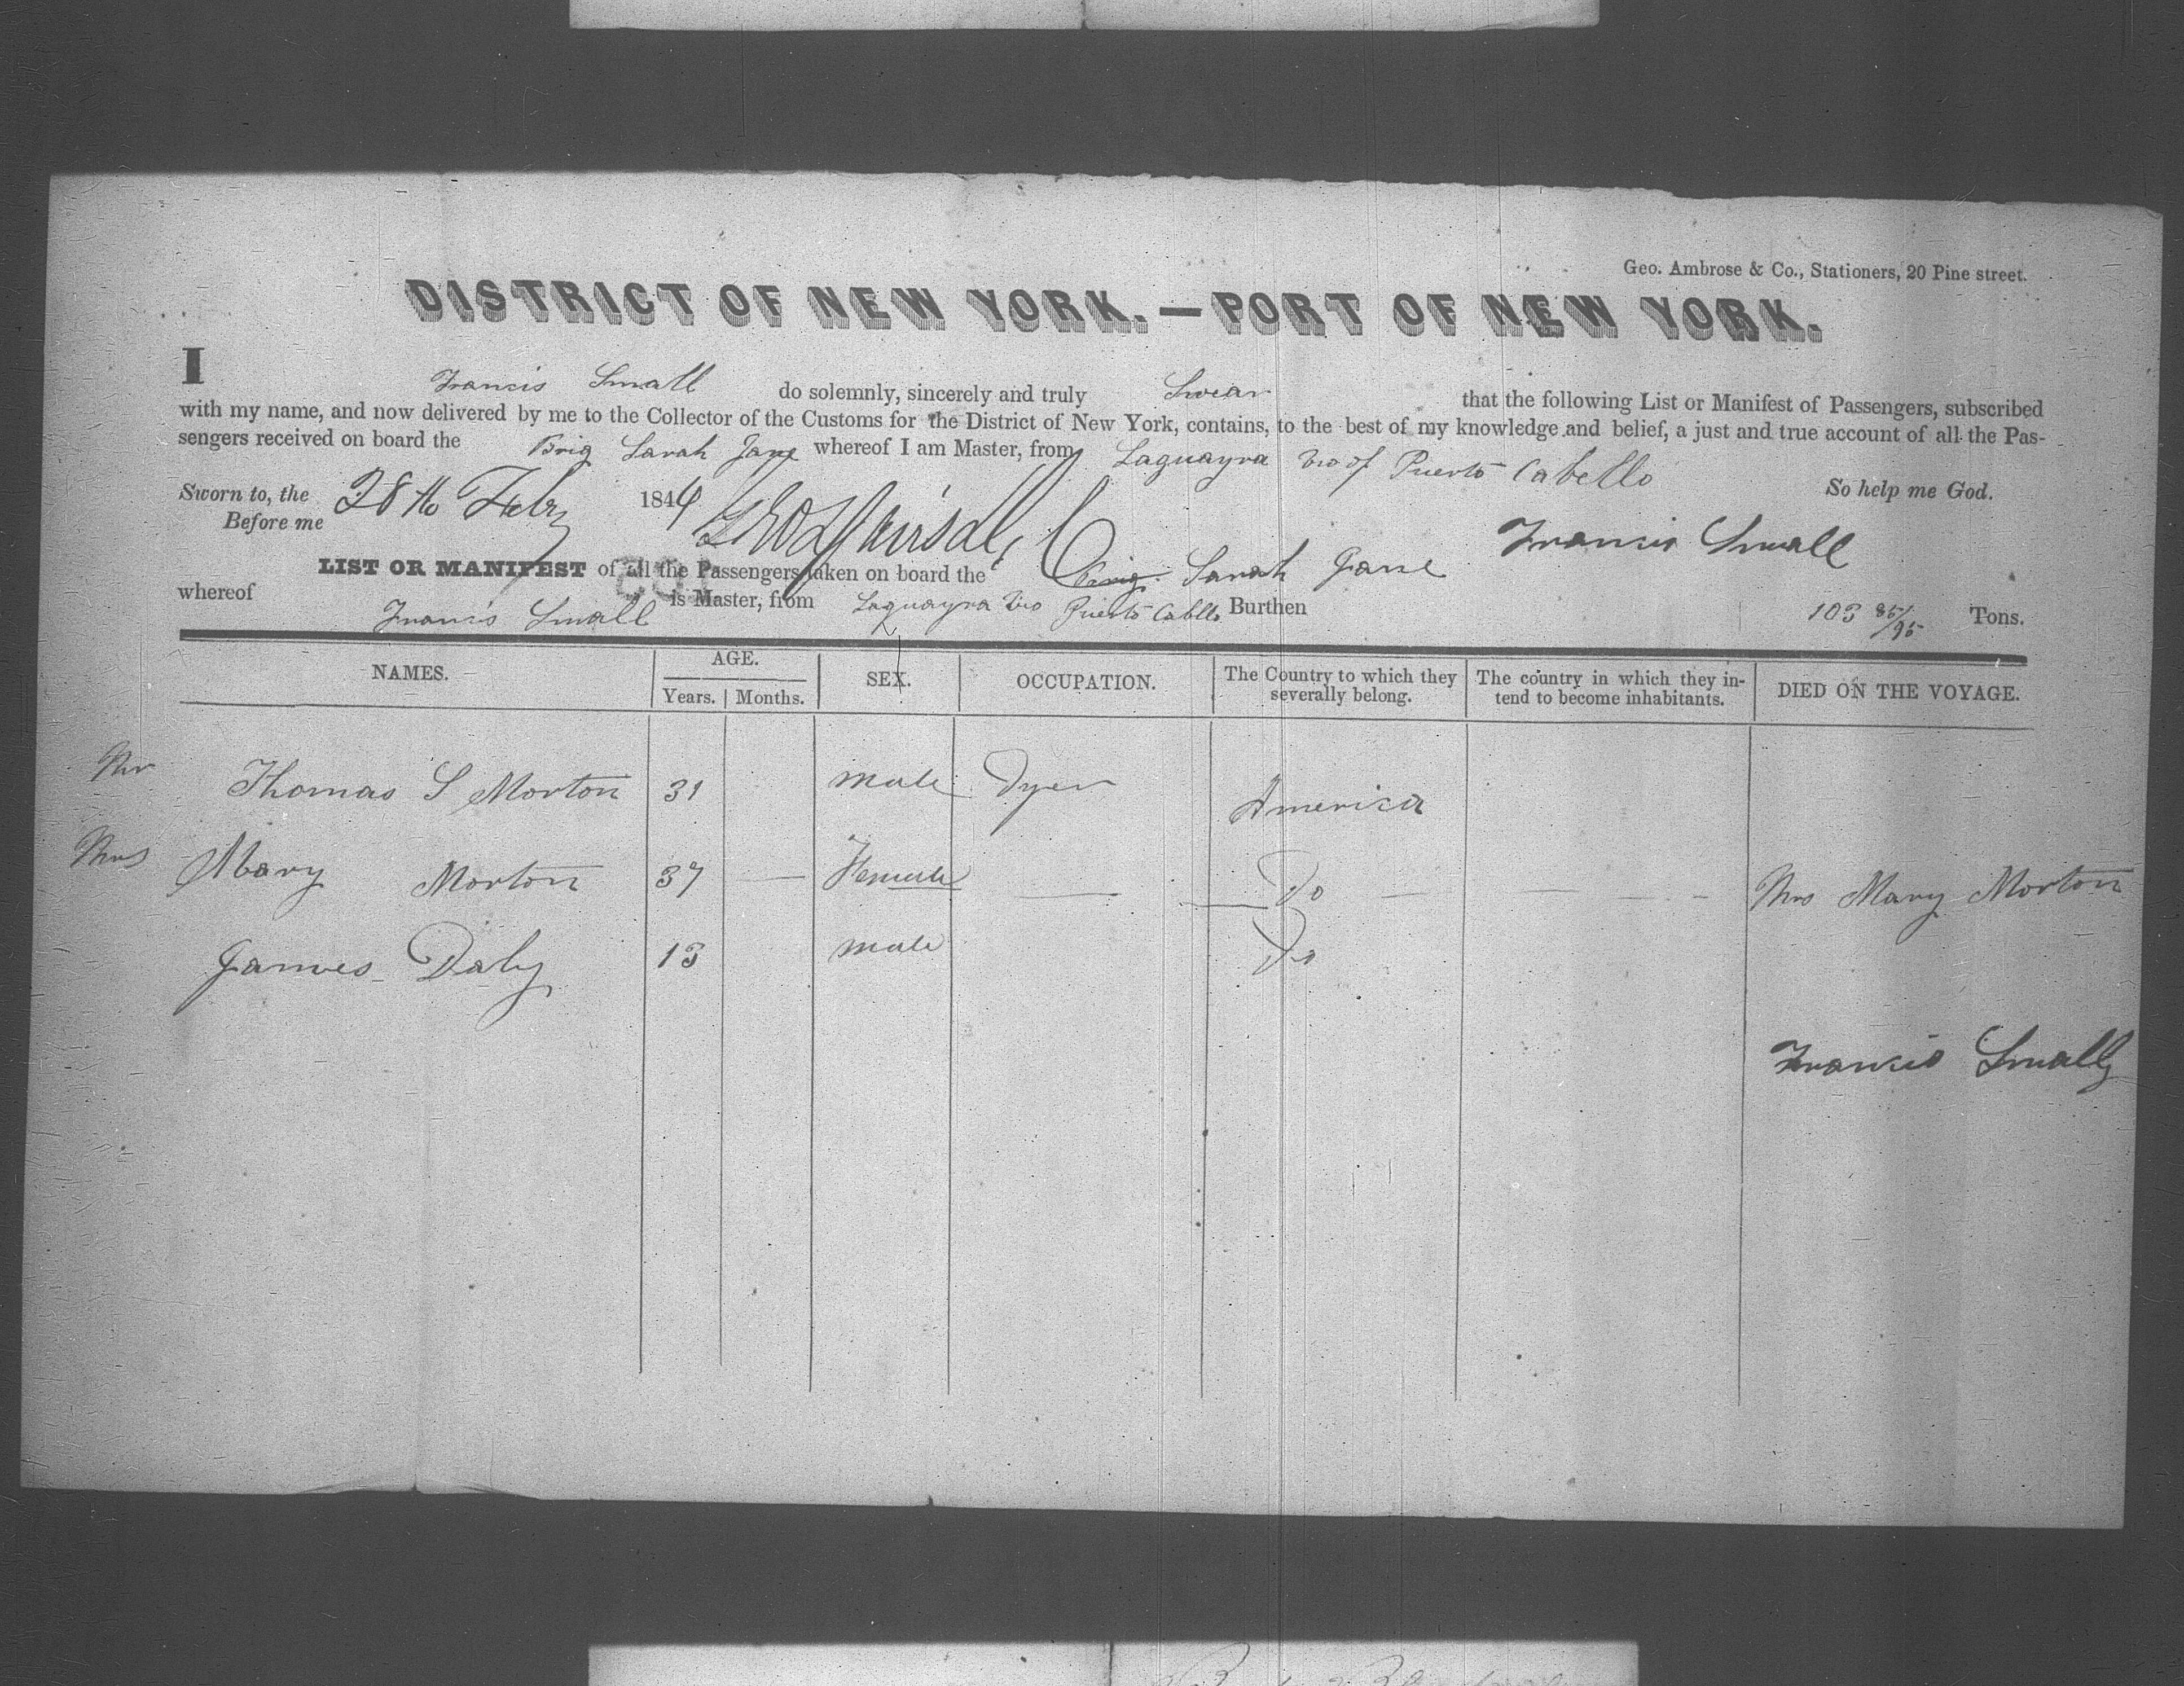 Geo. Ambrose & Co., Stationers, 20 Pine street.
DISTRICT OF NEW YORK.—PORT OF NEW YORK.
I Francis Small do solemnly, sincerely and truly Swear that the following List or Manifest of Passengers, subscribed
with my name, and now delivered by me to the Collector of the Customs for the District of New York, contains, to the best of my knowledge and belief, a just and true account of all the Pas-
sengers received on board the Brig Sarah Jane whereof I am Master, from Laguayra Puerto Cabello
Sworn to, the 28th Feby 1844 So help me God.
Before me Francis Small
LIST OR MANIFEST of all the Passengers taken on board the Brig Sarah Jane
whereof Francis Small is Master, from Laguayra Puerto Cabello Burthen 103 85/95 Tons.
NAMES. AGE. SEX. OCCUPATION. The Country to which they severally belong. The country in which they in- tend to become inhabitants. DIED ON THE VOYAGE.
Years. Months.
Mr Thomas S Morton 31 male Dyer America
Mrs Mary Morton 37 — Female — Do — — Mrs Mary Morton
James Daly 13 male Do
Francis Small